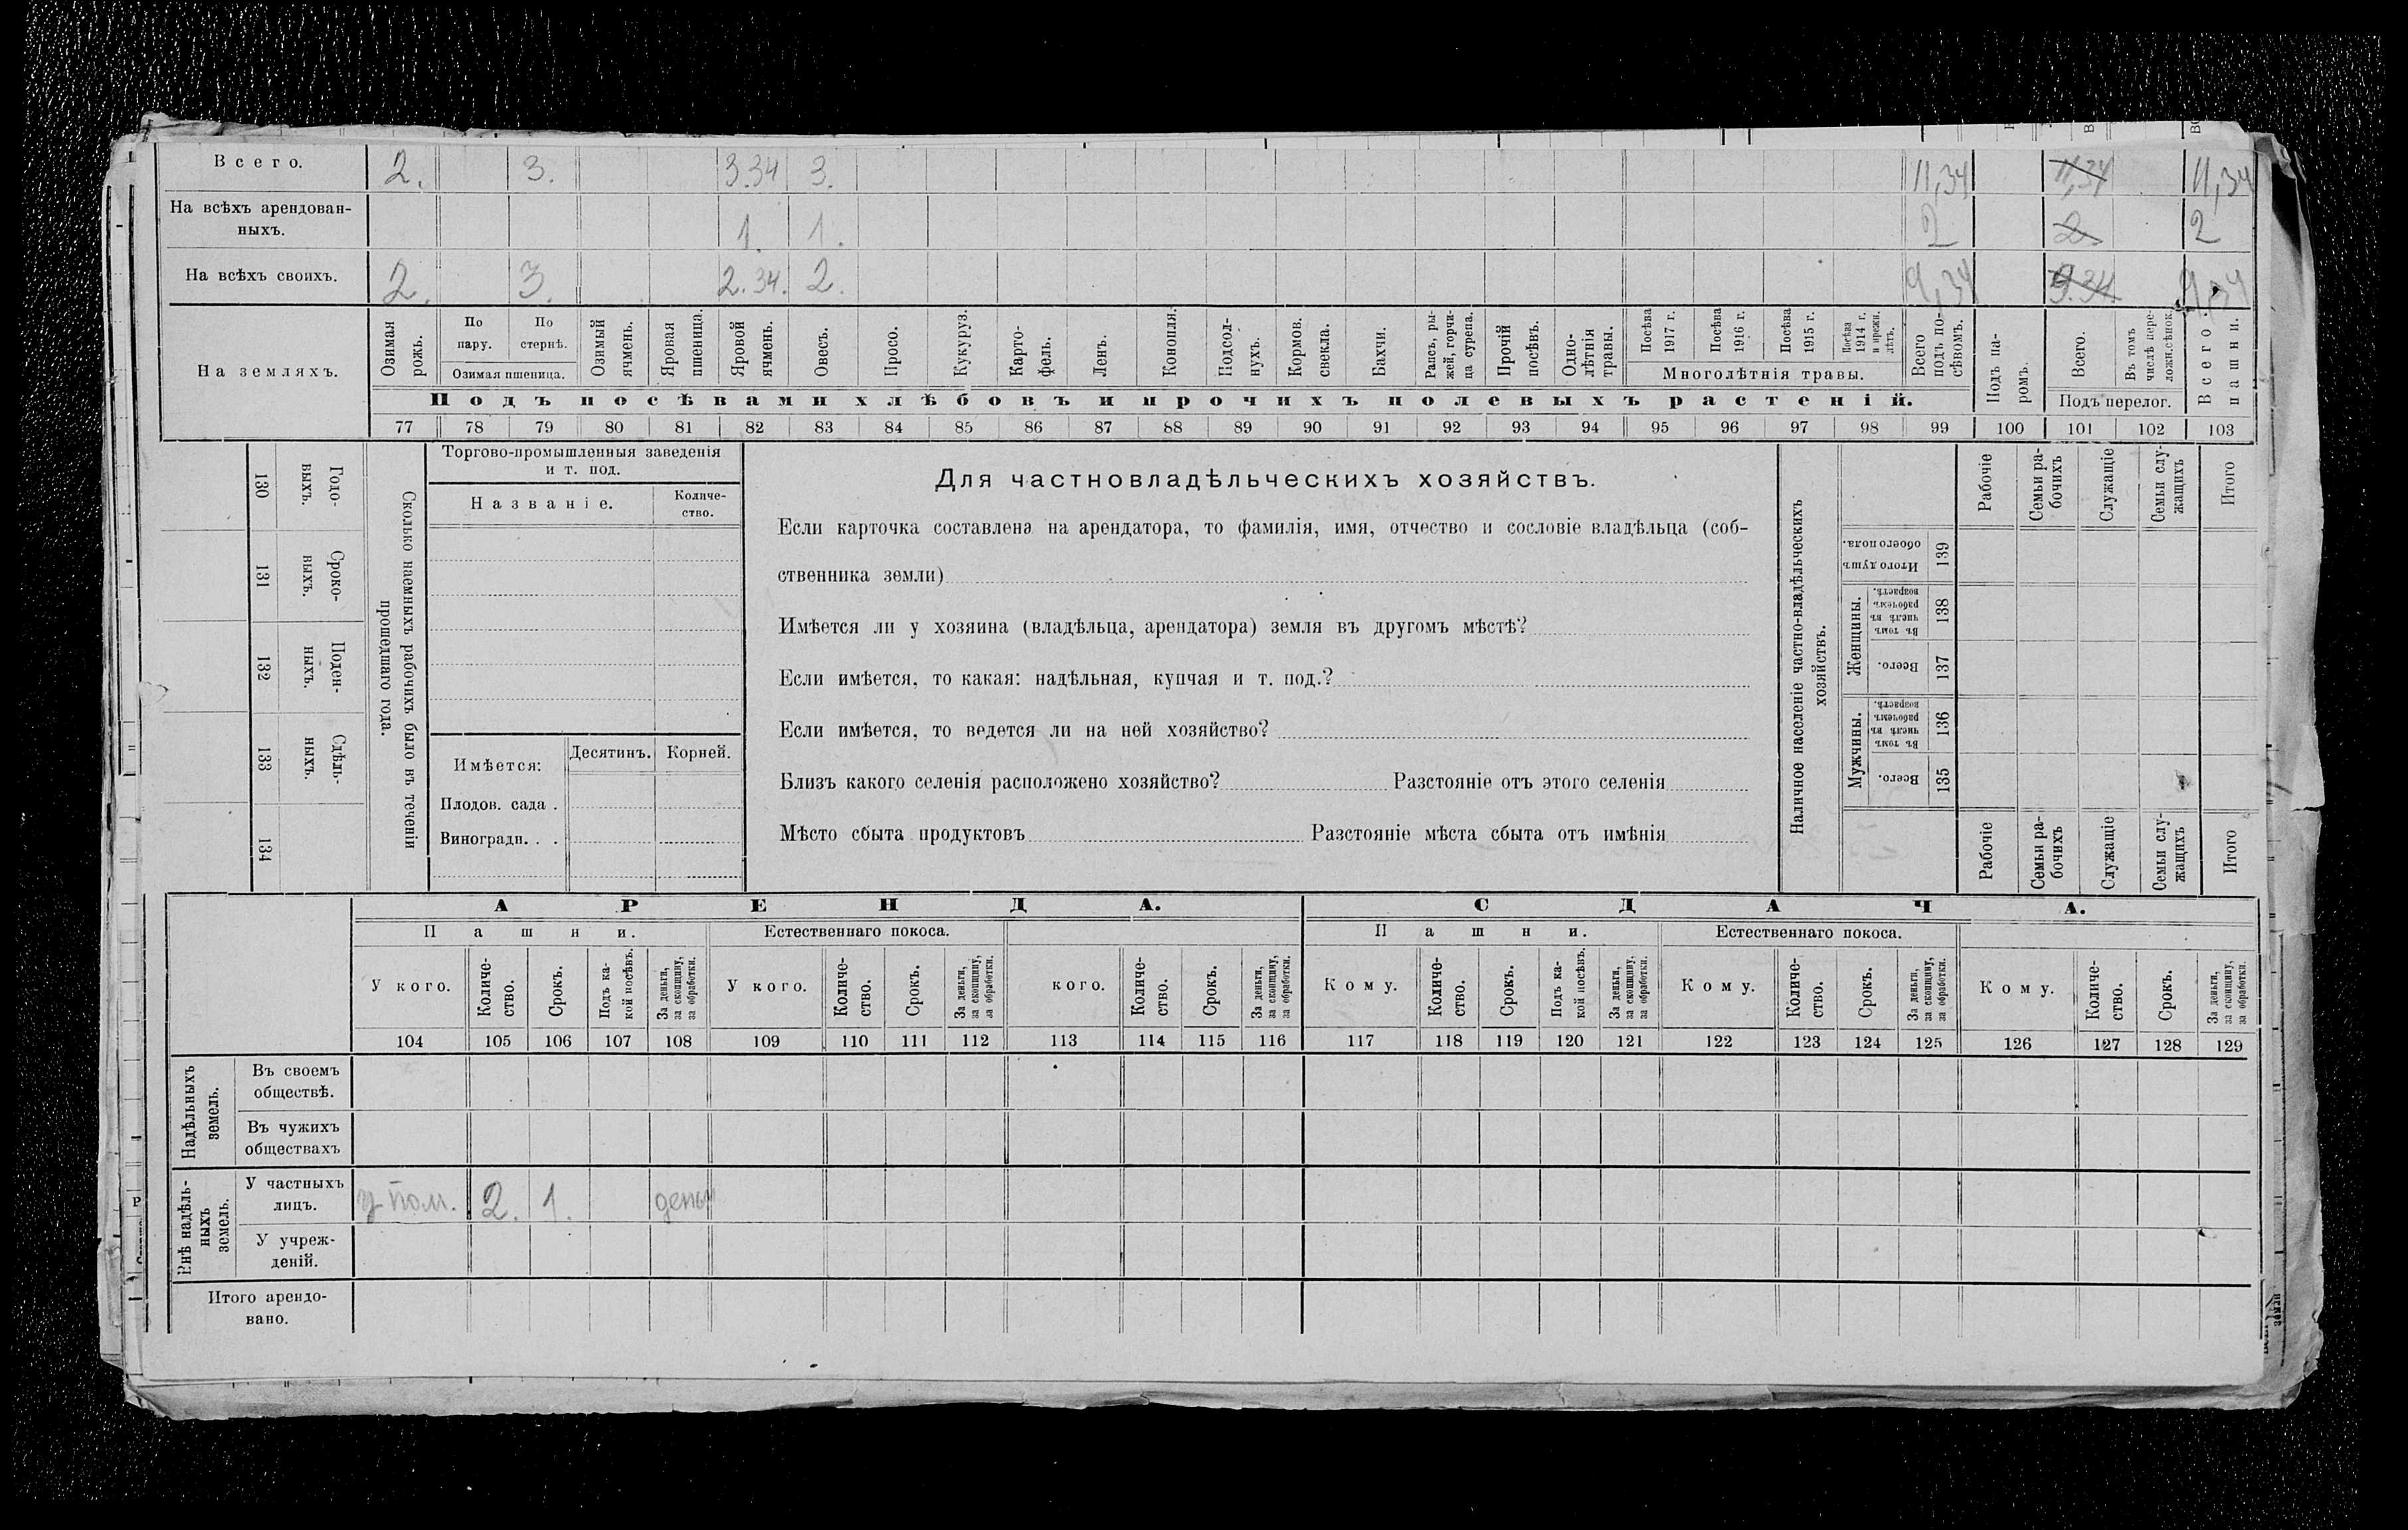 Всего. 2. 3. 3.34 3. 11,34 11,34 11,34
На всѣхъ арендован-
ныхъ. 1. 1. 2 2. 2
На всѣхъ своихъ. 2. 3. 2.34. 2. 9,34 9.34 9,34
На земляхъ.
Озимая рожь.
По пару.
По стернѣ.
Озимая пшеница.
Озимый ячмень.
Яровая пшеница.
Яровой ячмень.
Овесъ.
Просо.
Кукуруз.
Карто-
фель.
Ленъ.
Конопля.
Подсол-
нухъ.
Кормов. свекла.
Бахчи.
Рапсъ, ры-
жей, горчи-
ца сурепа.
Прочій посѣвъ.
Одно-
лѣтнія травы.
Посѣва 1917 г.
Посѣва 1916 г.
Посѣва 1915 г.
Посѣва 1914 г. и прежн. лѣтъ.
Многолѣтнія травы.
Всего подъ по-
сѣвомъ.
Подъ па-
ромъ.
Всего.
Въ томъ числѣ пере-
ложн. сѣнок.
Подъ перелог.
Всего пашни.
Подъ посѣвами хлѣбовъ и прочихъ полевыхъ растеній.
77 78 79 80 81 82 83 84 85 86 87 88 89 90 91 92 93 94 95 96 97 98 99 100 101 102 103
Сколько наемныхъ рабочихъ было въ теченіи
прошедшаго года.
Годо-
выхъ.
130
Сроко-
ныхъ.
131
Поден-
ныхъ.
132
Сдѣль-
ныхъ.
133
134
Торгово-промышленныя заведенія
и т. под.
Названіе.
Количе-
ство.
Имѣется: Десятинъ. Корней.
Плодов. сада .
Виноградн. . .
Для частновладѣльческихъ хозяйствъ.
Если карточка составлена на арендатора, то фамилія, имя, отчество и сословіе владѣльца (соб-
ственника земли)
Имѣется ли у хозяина (владѣльца, арендатора) земля въ другомъ мѣстѣ?
Если имѣется, то какая: надѣльная, купчая и т. под.?
Если имѣется, то ведется ли на ней хозяйство?
Близъ какого селенія расположено хозяйство? Разстояніе отъ этого селенія
Мѣсто сбыта продуктовъ Разстояніе мѣста сбыта отъ имѣнія
Наличное населеніе частно-владѣльческихъ
хозяйствъ.
Рабочіе
Семьи ра-
бочихъ
Служащіе
Семьи слу-
жащихъ
Итого
Итого душъ
обоего пола.
139
Женщины.
Въ томъ числѣ въ рабочемъ возрастѣ.
138
Всего.
137
Мужчины.
Въ томъ числѣ въ рабочемъ возрастѣ.
136
Всего.
135
Рабочіе
Семьи ра-
бочихъ
Служащіе
Семьи слу-
жащихъ
Итого
АРЕНДА. СДАЧА.
Пашни. Естественнаго покоса. Пашни. Естественнаго покоса.
У кого.
Количе-
ство.
Срокъ.
Подъ ка-
кой посѣвъ.
За деньги,
за скопщину,
за обработки.
У кого.
Количе-
ство.
Срокъ.
За деньги,
за скопщину,
за обработки.
кого.
Количе-
ство.
Срокъ.
За деньги,
за скопщину,
за обработки.
Кому.
Количе-
ство.
Срокъ.
Подъ ка-
кой посѣвъ.
За деньги,
за скопщину,
за обработки.
Кому.
Количе-
ство.
Срокъ.
За деньги,
за скопщину,
за обработки.
Кому.
Количе-
ство.
Срокъ.
За деньги,
за скопщину,
за обработки.
104 105 106 107 108 109 110 111 112 113 114 115 116 117 118 119 120 121 122 123 124 125 126 127 128 129
Надѣльныхъ
земель.
Въ своемъ
обществѣ.
Въ чужихъ
обществахъ
Внѣ надѣль-
ныхъ
земель.
У частныхъ
лицъ. у пом. 2. 1. день
У учреж-
деній.
Итого арендо-
вано.